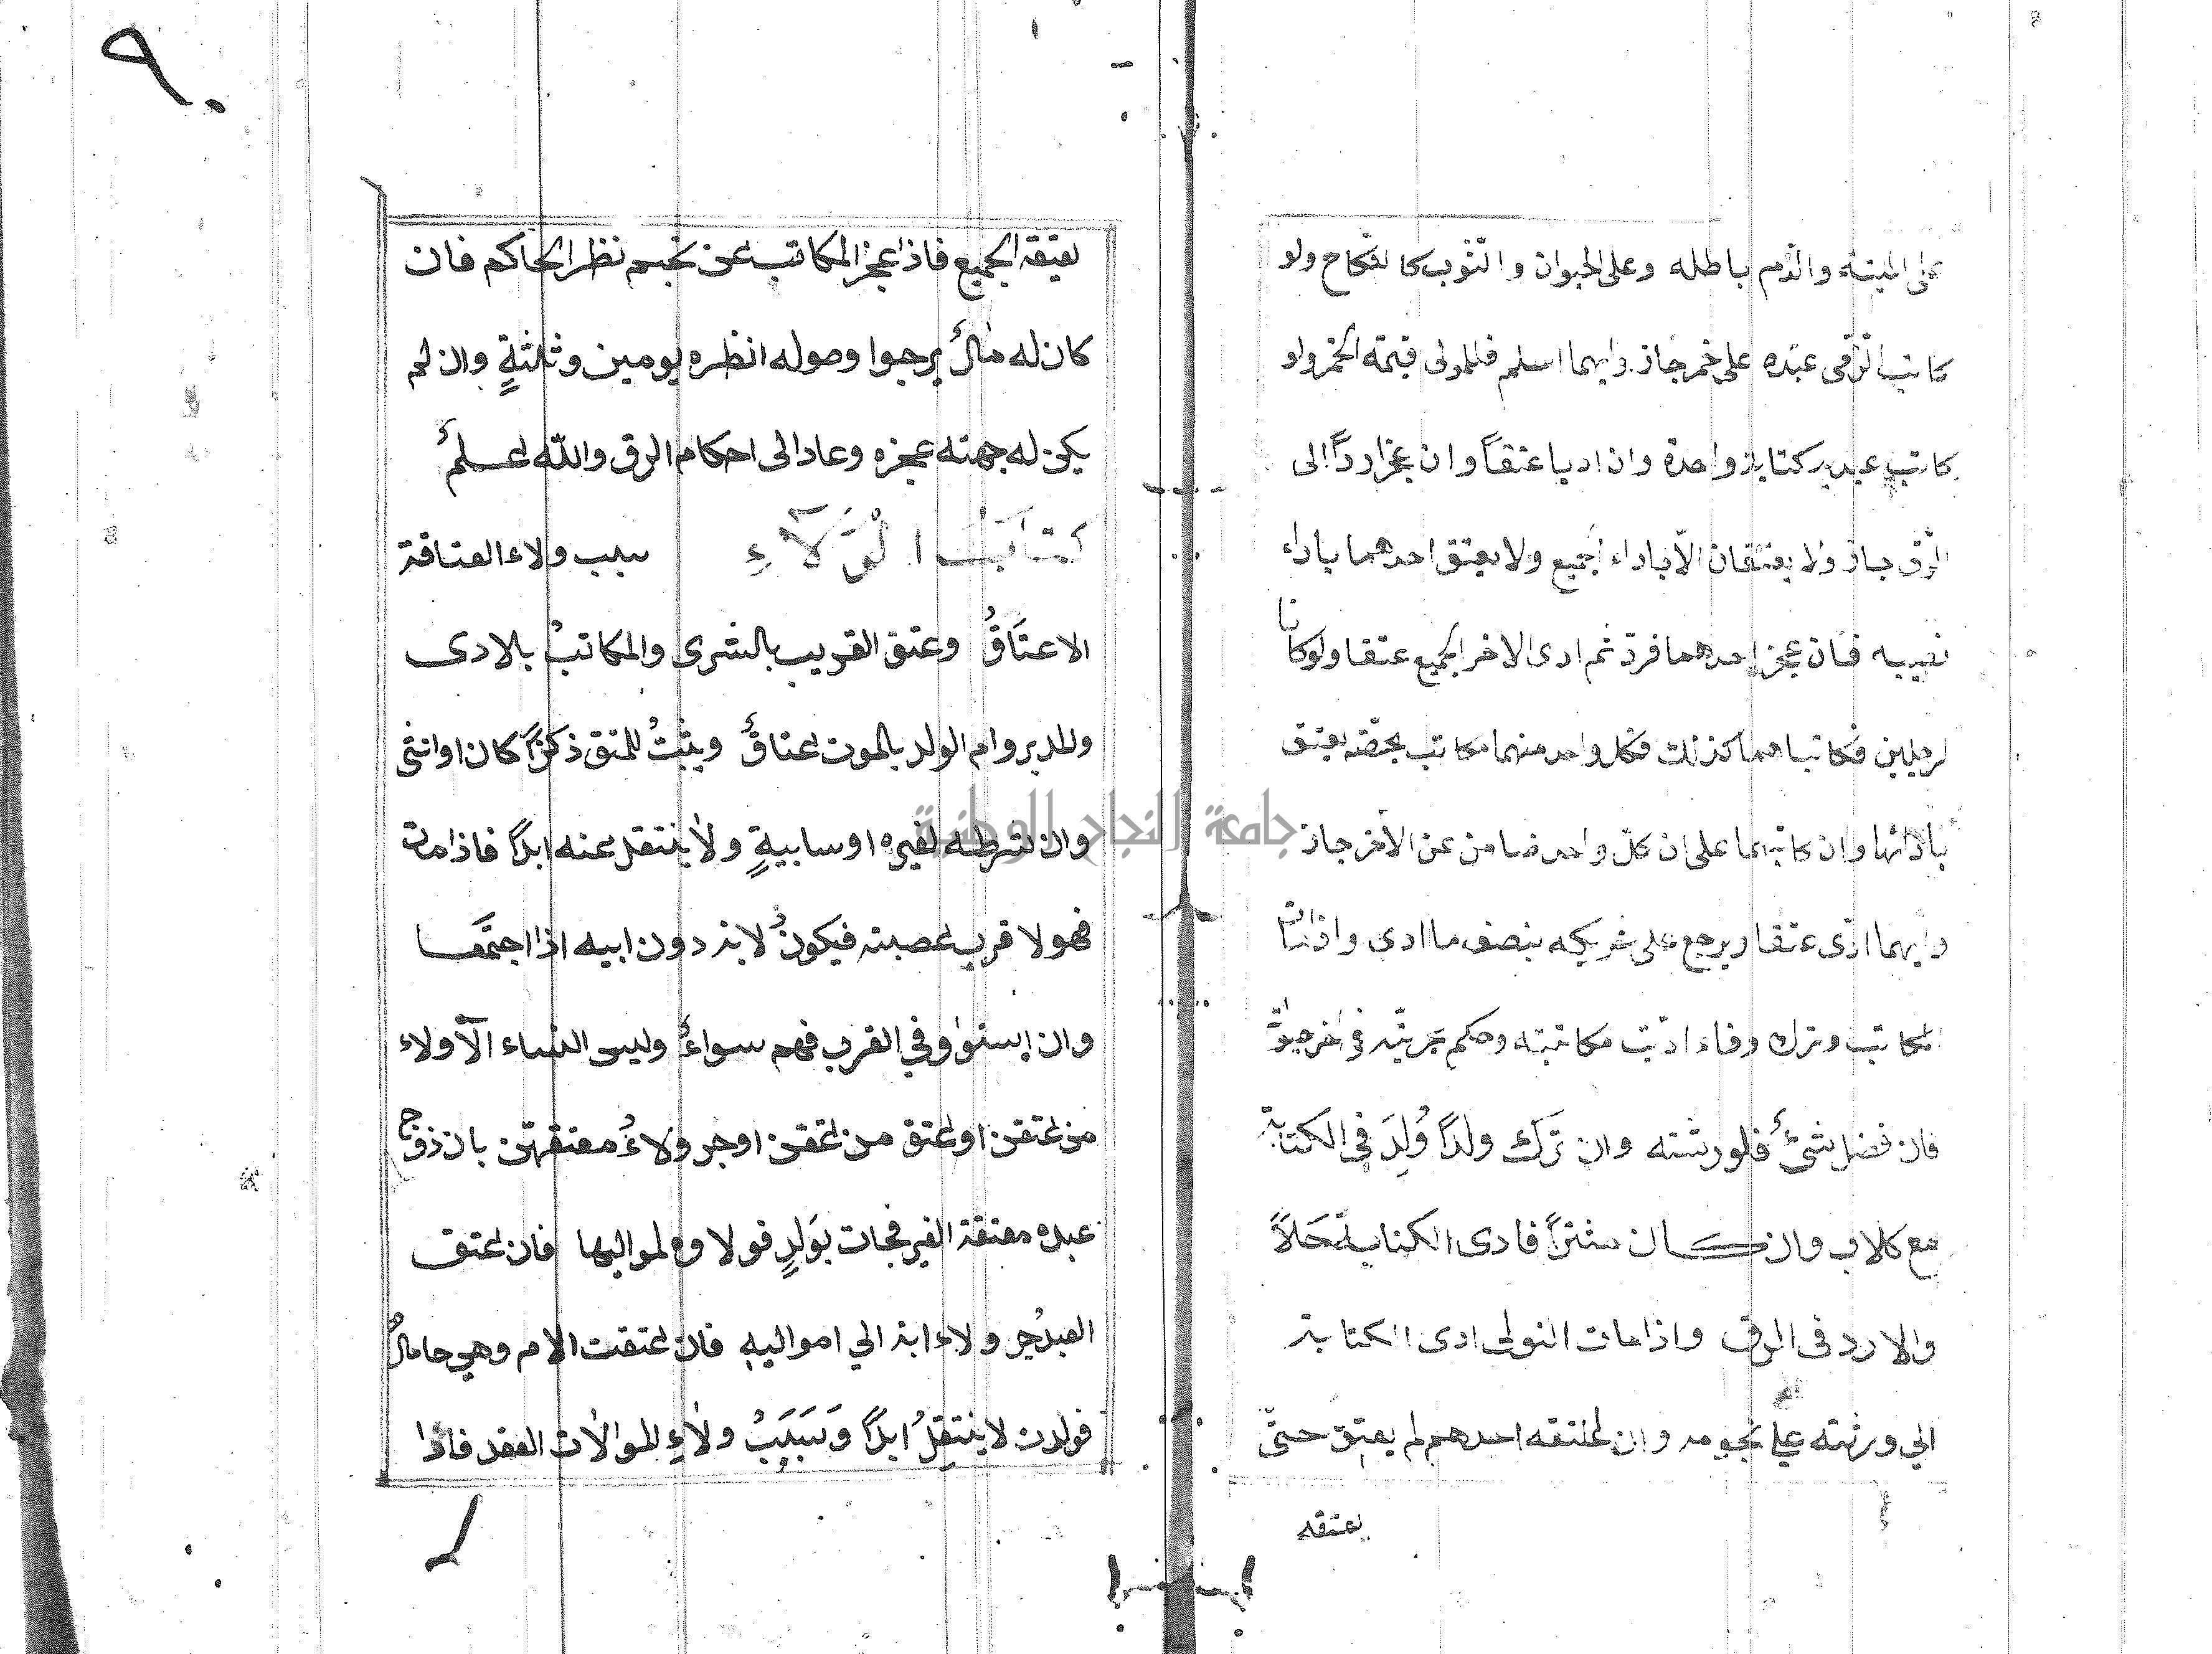 على الميتة والدم باطله وعلى الحيوان والثوب كالنكاح ولو
كاتب الذمى عبده على خمر جاز وايهما اسلم فللمولى قيمة الخمر ولو
كاتب عبديه كتابة واحدة وان اديا عتقاً وان عجزا ردّا الى
الرّق جاز ولا يعتقان الّا باداء الجميع ولا يعتق احدهما باداء
نصيبه فان عجز احدهما فردّ ثم ادى الاخر الجميع عتقا ولو كانا
لرجلين فكاتباهما كذلك فكل واحد منهما مكاتب بحصّته يعتق
بادائها وان كاتبهما على ان كلّ واحد ضامن عن الآخر جاز
وايهما ادّى عتقا ويرجع على شريكه بنصف ما ادى واذا مات
المكاتب وترك وفاء ادّيت مكاتبته وحكم بحريّته فى اخر حيوٰته
فان فضل شئٌ فلورثته وان ترك ولداً وُلِدَ فى الكتابة
مع كالاب وان كان مشترًا فادى الكتابة حَالّاً
والا رد فى الرق واذا مات المولى ادى الكتابة
الي ورثته على نجومه وان اعتقه احدهم لم يعتق حتّى
يعتقه
٩٠
يعتقه الجميع فاذا عجز المكاتب عن نجم نظر الحاكم فان
كان له مالٌ يرجوا وصوله انظره يومين وثلثةٍ وان لم
يكن له جهته عجزه وعاد الى احكام الرق والله اعلمُ
كتابُ الْوَلَآءِ سبب ولاء العتاقة
الاعتَاقُ وعتق القريب بالشرى والمكاتبُ بالادى
والمدبر وام الولد بالموت اعتاقٌ ويثبتُ للمتق ذكرًا كان او انثى
وان شرطه لغيره او سايبةٍ ولا ينتقل عنه ابدًا فاذا مات
فهو لا قرب عصبته فيكونُ لابنه دون ابيه اذا اجتَمَعا
وان استوٰو فى القرب فهم سواءٌ وليس النساء الّا ولاء
من اعتقن او اعتق من اعتقن او جر ولاءُ معتقهنّ بان زوج
عبده معتقة الغير فجات بوَلدٍ فولاوه لمواليها فان اعتق
العبدُ جر ولاء ابنه الي اموالیه فان اعتقت الام وهى حاملٌ
فولدن لا ينتقِلُ ابدًا وَسَبَبُ ولاءِ الموالات العقد فاذا
جامعة النجاح الوطنية